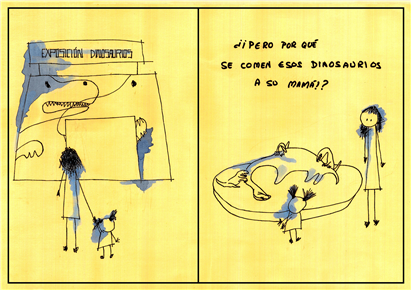 EXPOSICIÓN DINOSAURIOS
¿¡PERO POR QUÉ
SE COMEN ESOS DINOSAURIOS
A SU MAMÁ!?